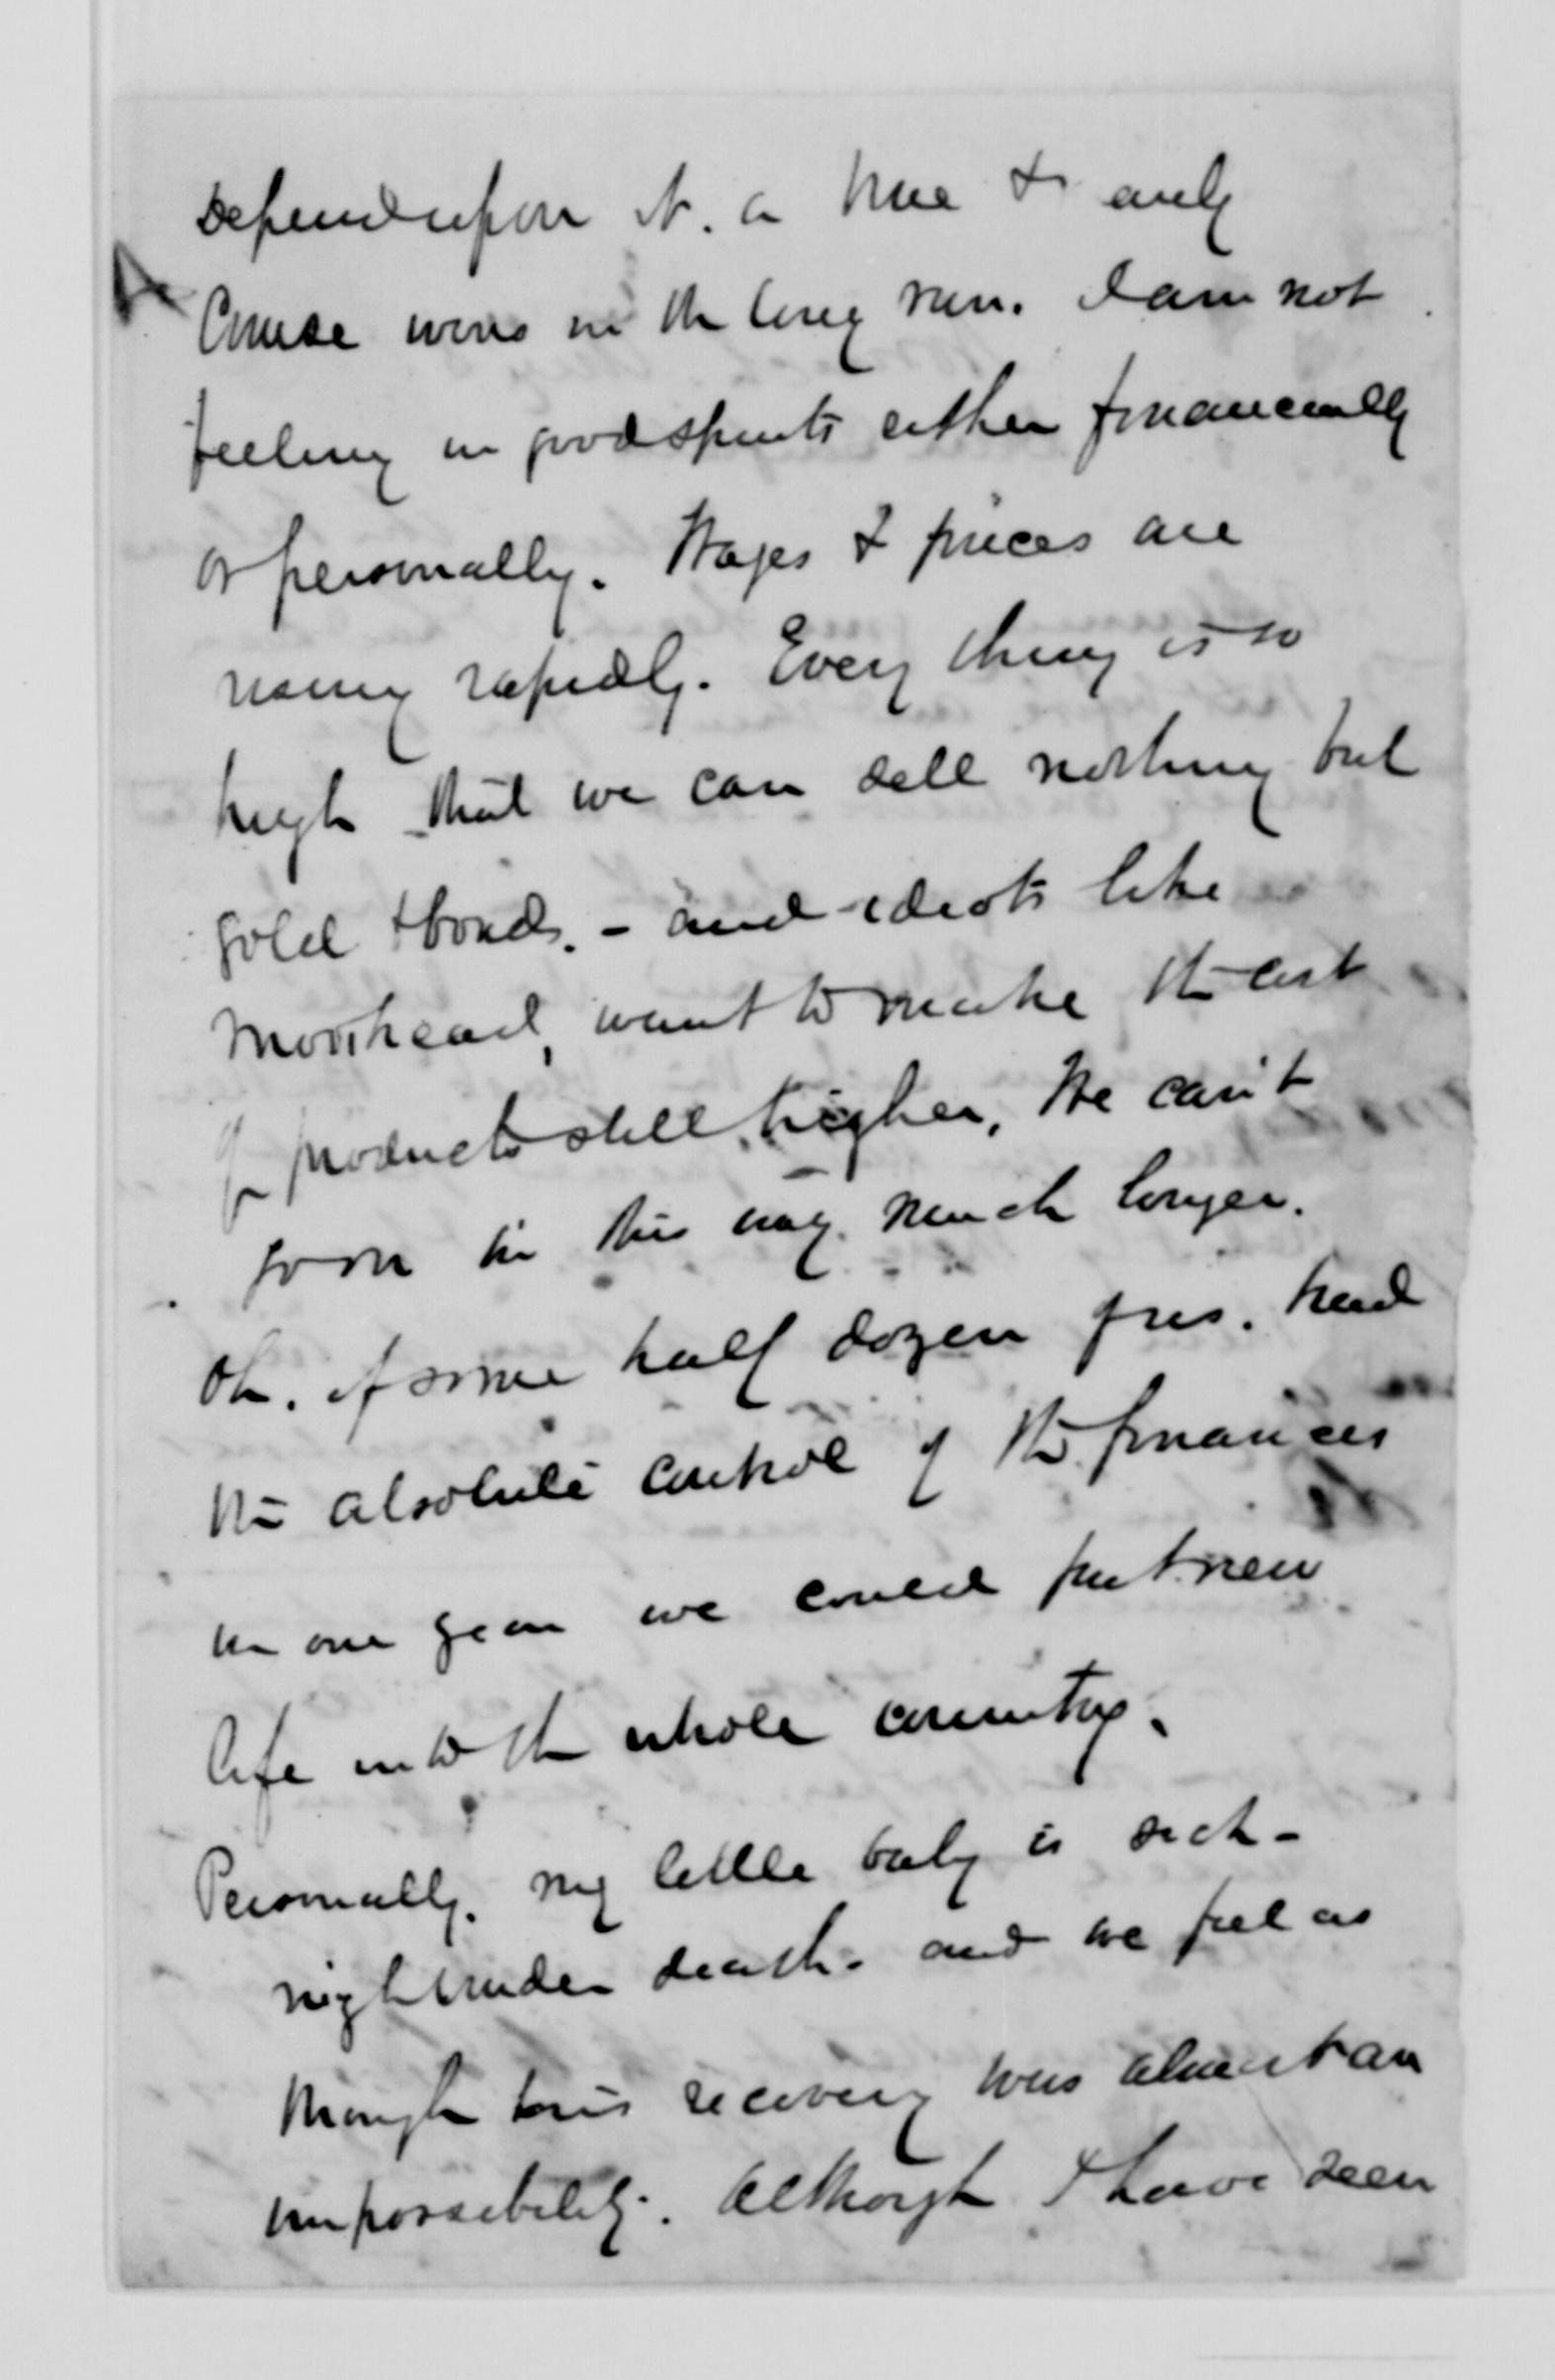 Depend upon it. a true & only
Course wins in the long run. I am not
feeling in good spirits either financially
or personally. Wages & prices are
rising rapidly. Every thing is so
high that we can sell nothing but
gold & bonds. - and idiots like
Moorhead, want to make the cost
of products still higher, We can't
go on in this way much longer.
Oh. if some half dozen of us. had
the absolute control of the finances
in one year we could put new
life into the whole country.
Personally. my little baby is sick -
nigh under death. and we feel as
though his recovery was almost an
impossibility. Although I have seen